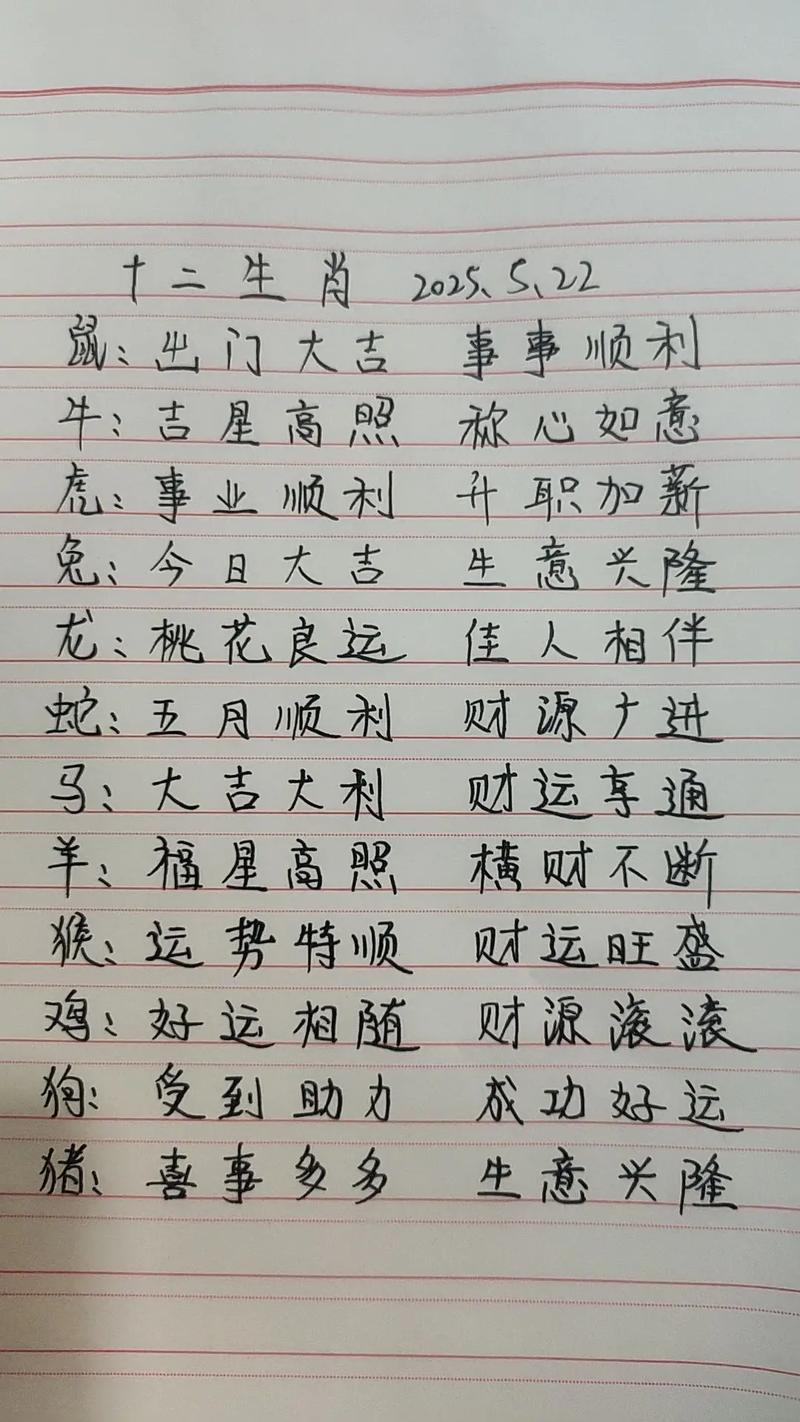 十二生肖 2025、5、22
鼠：出门大吉 事事顺利
牛：吉星高照 称心如意
虎：事业顺利 升职加薪
兔：今日大吉 生意兴隆
龙：桃花良运 佳人相伴
蛇：五月顺利 财源广进
马：大吉大利 财运享通
羊：福星高照 横财不断
猴：运势特顺 财运旺盛
鸡：好运相随 财源滚滚
狗：受到助力 成功好运
猪：喜事多多 生意兴隆